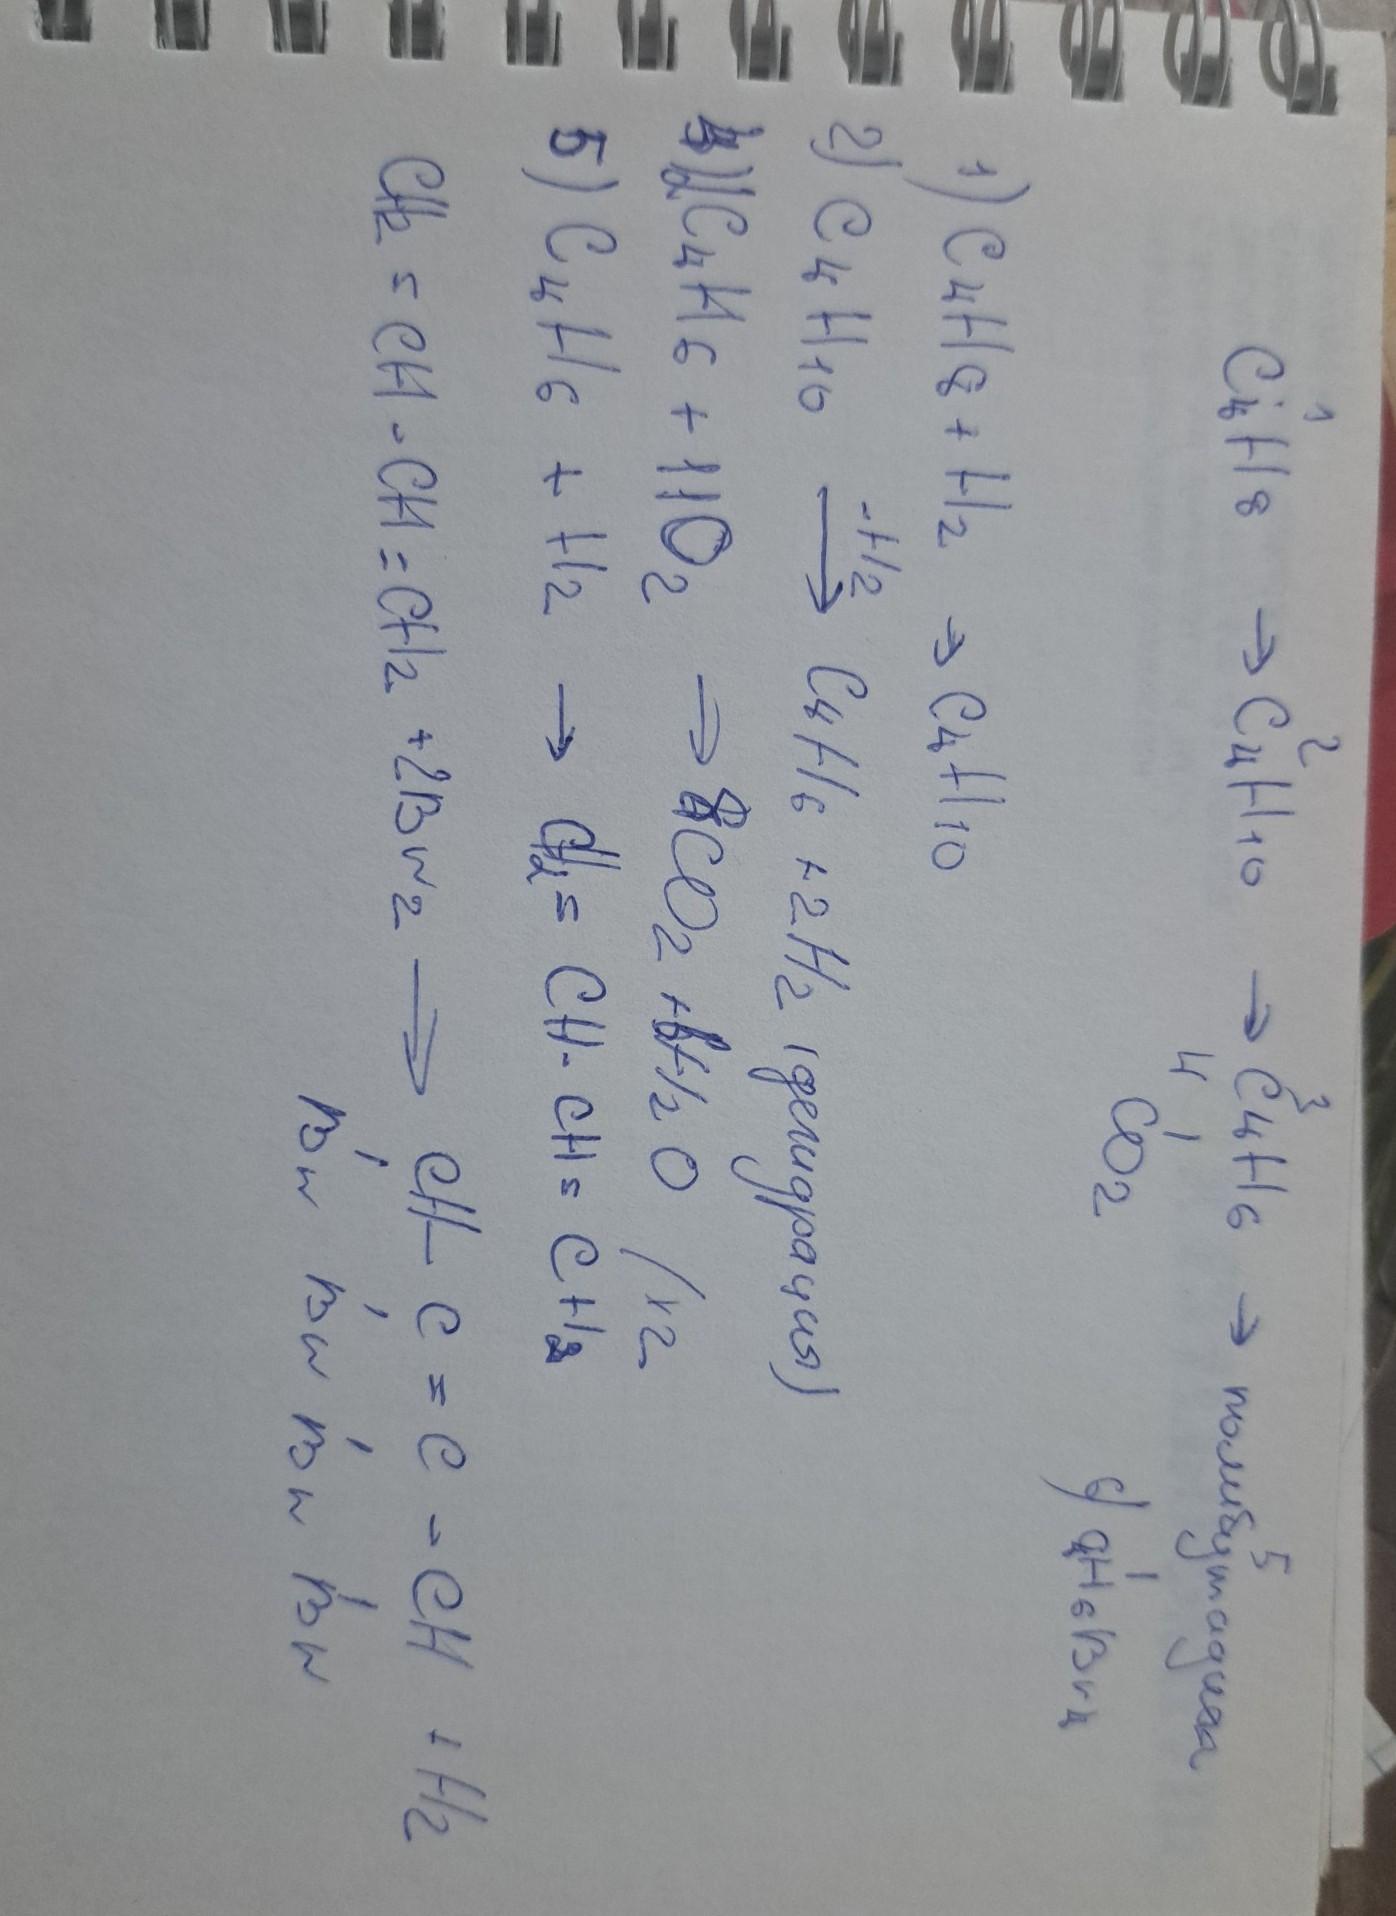 C₄H₈ → C₄H₁₀ → C₄H₆ → полибутадиен
1 2 3 5
4
CO₂
C₄H₆Br₄
1) C₄H₈ + H₂ → C₄H₁₀
2) C₄H₁₀ -H₂→ C₄H₆ + 2H₂ (дегидрация)
2C₄H₆ + 11O₂ → 8CO₂ + 6H₂O /12
5) C₄H₆ + H₂ → CH₂ = CH - CH = CH₂
CH₂ = CH - CH = CH₂ + 2Br₂ → CH - C = C - CH + H₂
Br Br Br Br